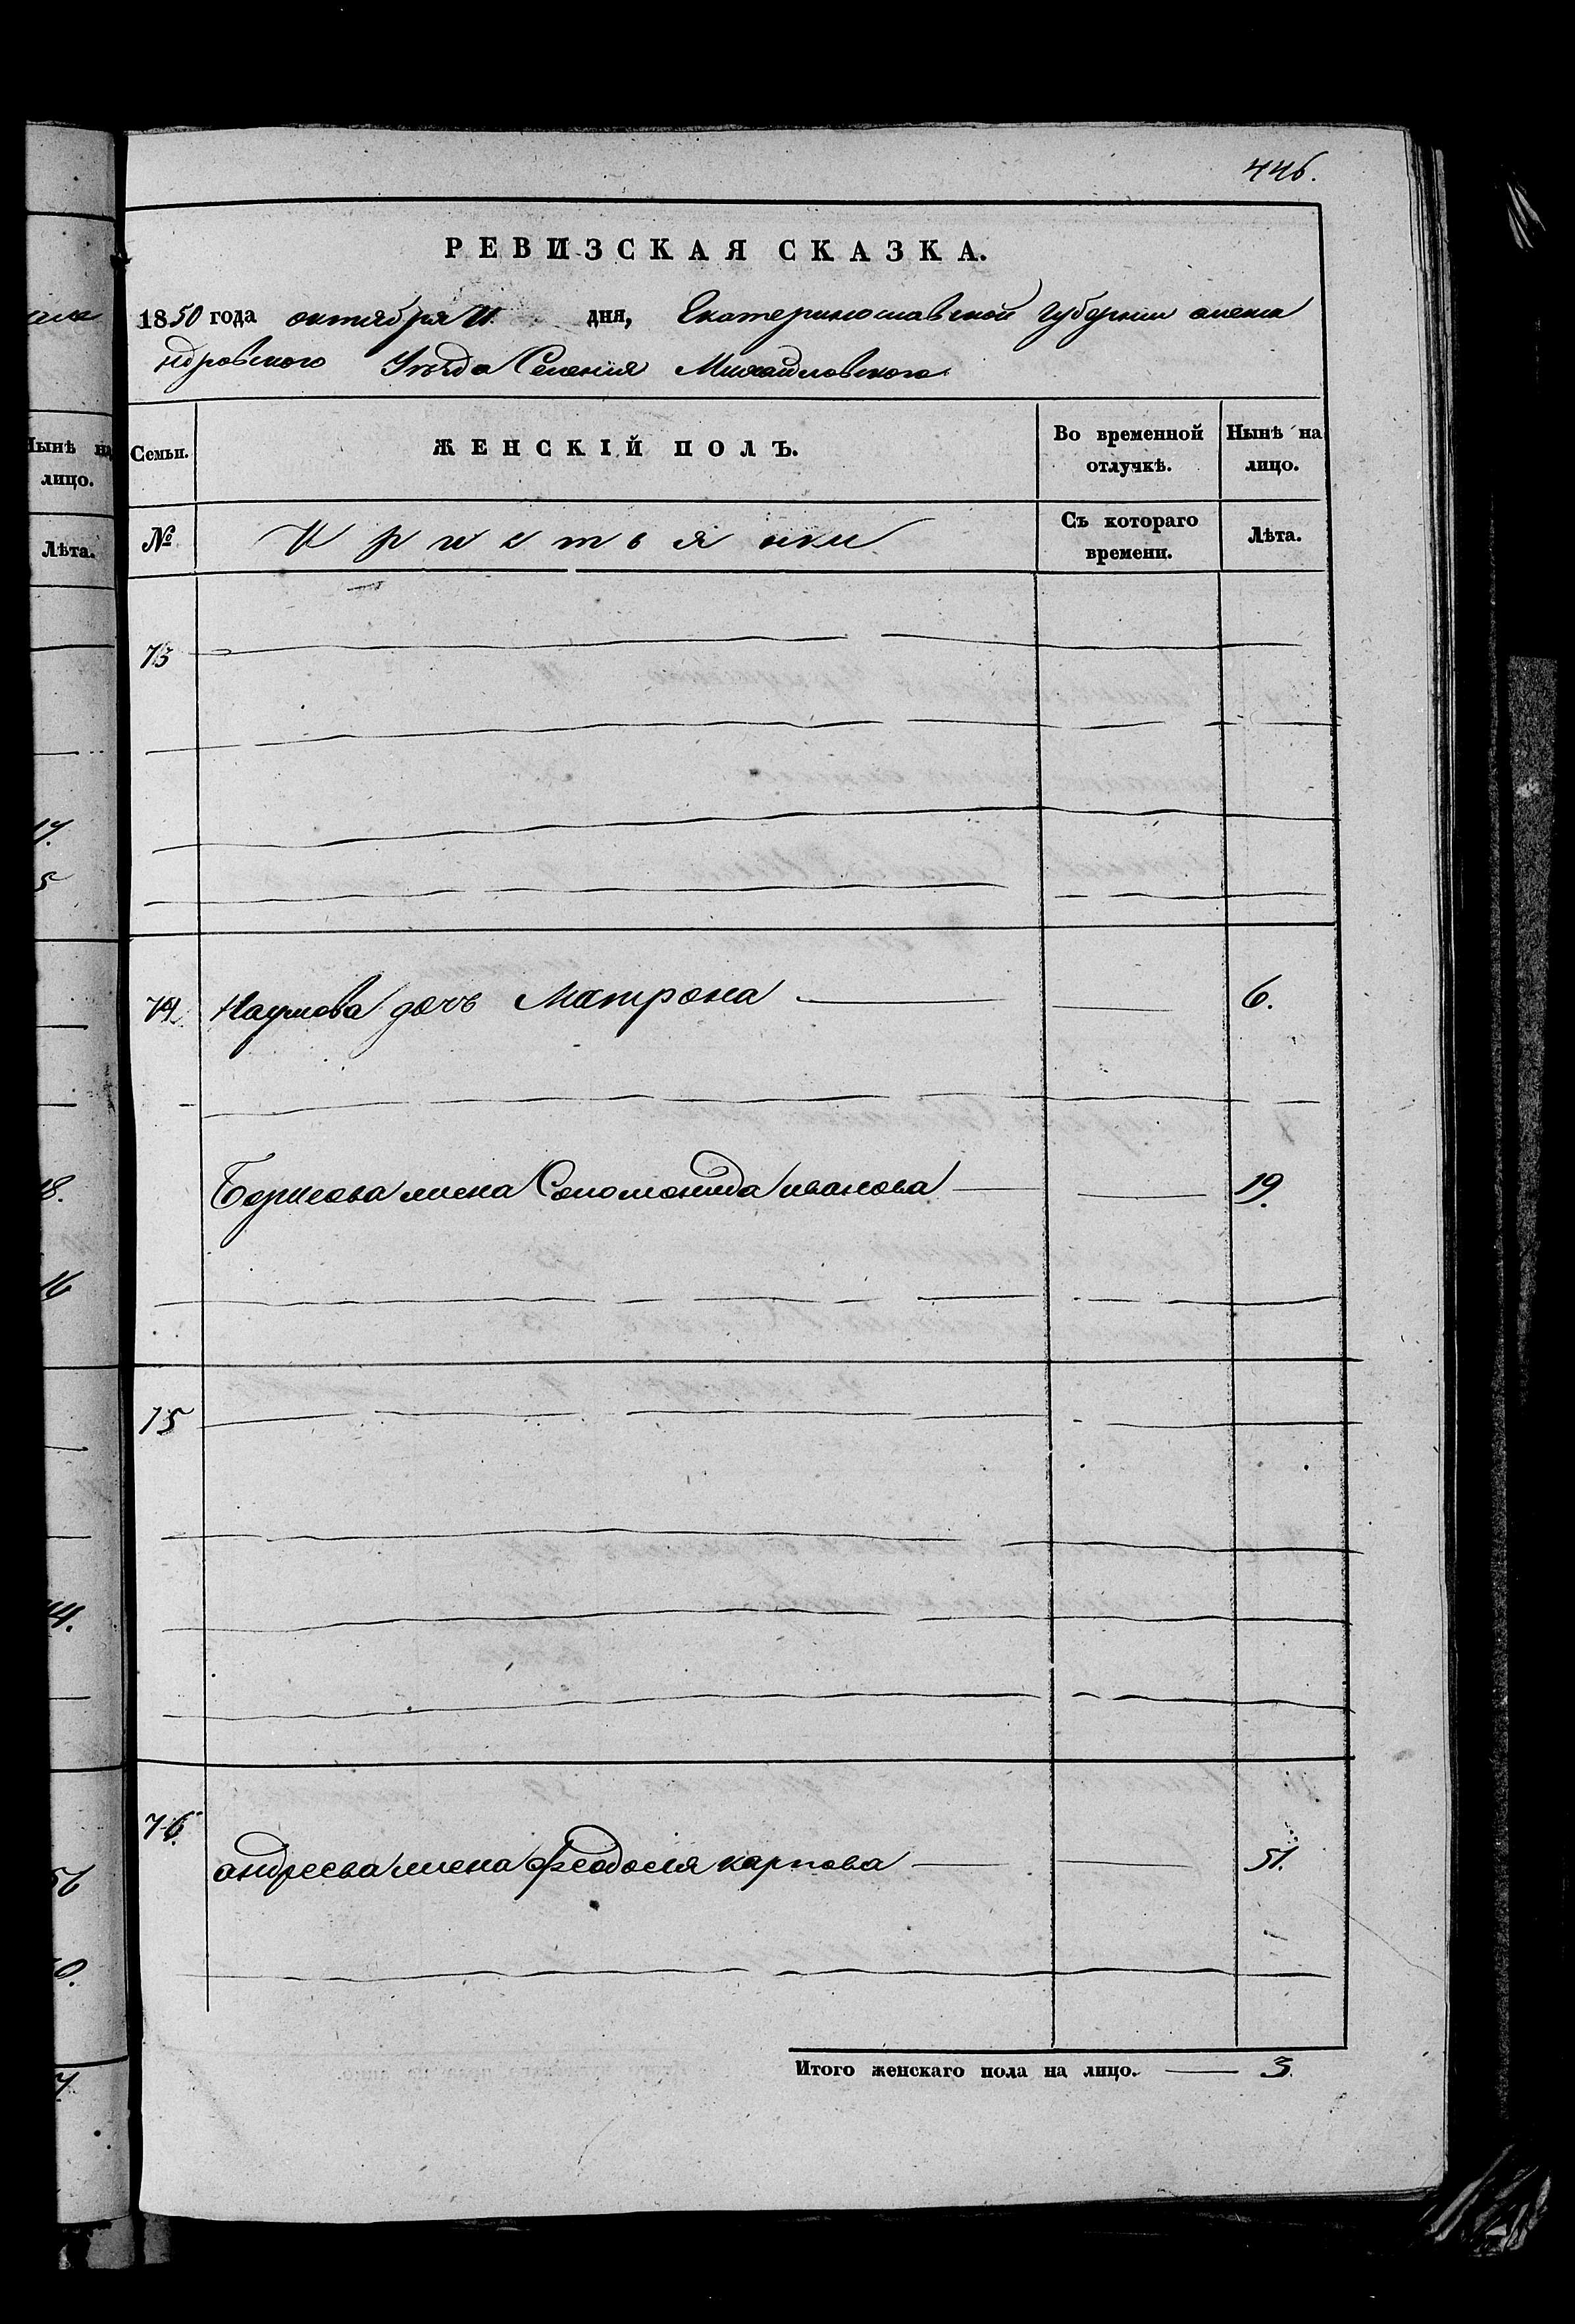 446.
РЕВИЗСКАЯ СКАЗКА.
1850 года октября 11 дня, Екатеринославской губернии алекса
ндровского Уѣзда Селения Михайловского
Нынѣ на лицо.
Лѣта.
Семьи.
ЖЕНСКІЙ ПОЛЪ.
Во временной отлучкѣ.
Нынѣ на лицо.
№
Кристьянки
Съ котораго времени.
Лѣта.
73
74 Наумова дочь Матрона 6.
Борисова жена Соломонида иванова 19.
75
76.
андреева жена Феодосия карпова 51.
Итого женскаго пола на лицо. 3.
17.
5
18.
16
14.
56